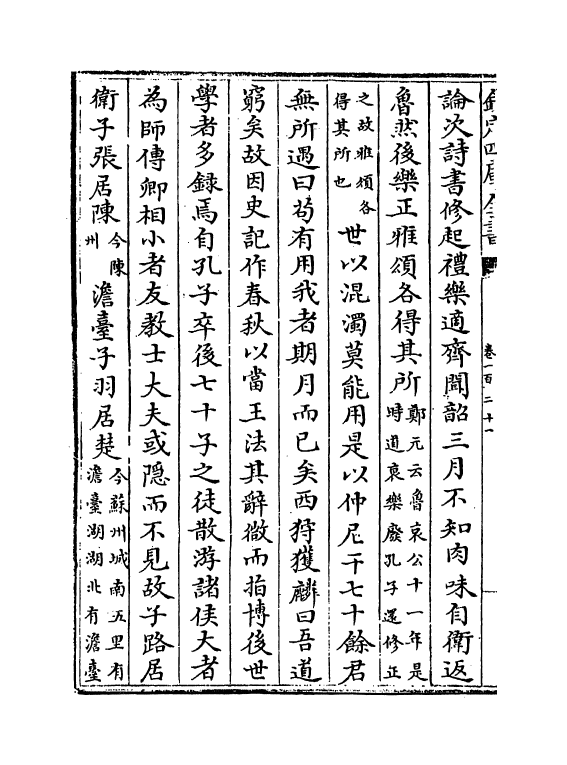 欽定四庫全書
卷一百二十一
論次詩書修起禮樂適齊聞韶三月不知肉味自衛返
魯然後樂正雅頌各得其所鄭元云魯哀公十一年是
時道衰樂廢孔子還修正
之故雅頌各
得其所也世以混濁莫能用是以仲尼干七十餘君
無所遇曰苟有用我者期月而已矣西狩獲麟曰吾道
窮矣故因史記作春秋以當王法其辭微而指博後世
學者多録焉自孔子卒後七十子之徒散游諸侯大者
為師傅卿相小者友教士大夫或隠而不見故子路居
衛子張居陳今陳
州澹臺子羽居楚今蘇州城南五里有
澹臺湖湖北有澹臺